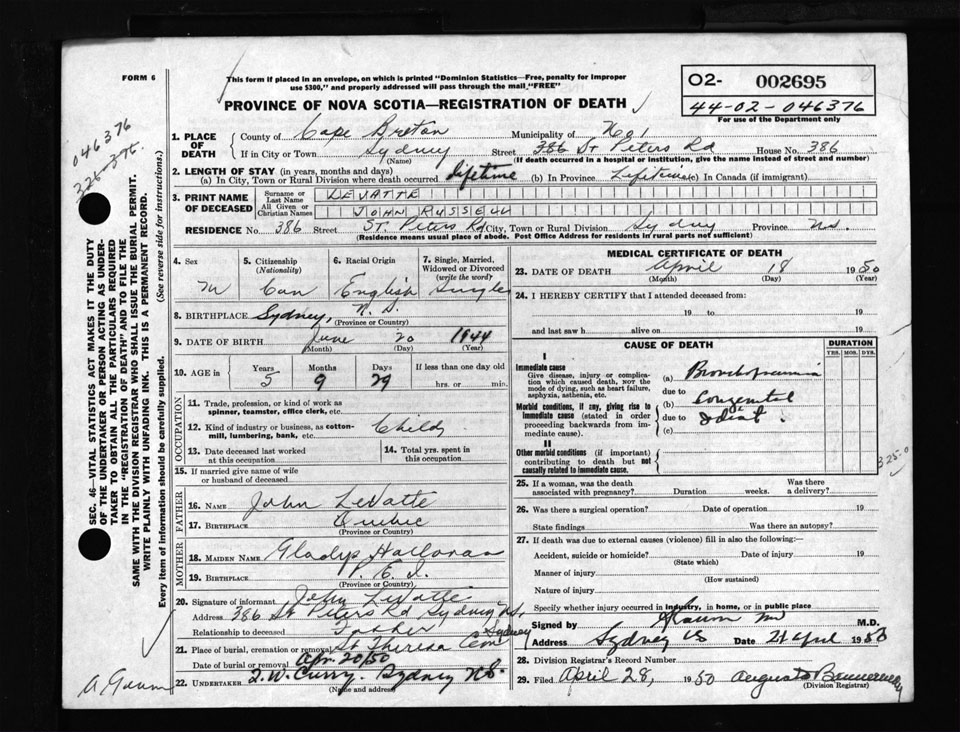 FORM 6
This form if placed in an envelope, on which is printed "Dominion Statistics—Free, penalty for improper
use $300," and properly addressed will pass through the mail "FREE"
PROVINCE OF NOVA SCOTIA—REGISTRATION OF DEATH
O2- 002695
44-02-046376
For use of the Department only
046376
326-375.
1. PLACE OF DEATH County of Cape Breton Municipality of No 1
If in City or Town Sydney Street 386 St Peters Rd House No. 386
(Name) (If death occurred in a hospital or institution, give the name instead of street and number)
2. LENGTH OF STAY (in years, months and days)
(a) In City, Town or Rural Division where death occurred lifetime (b) In Province Lifetime (c) In Canada (if immigrant)
3. PRINT NAME OF DECEASED Surname or Last Name LEVATTE
All Given or Christian Names JOHN RUSSELL
RESIDENCE No. 386 Street St. Peters Rd City, Town or Rural Division Sydney Province N.S.
(Residence means usual place of abode. Post Office Address for residents in rural parts not sufficient)
4. Sex 5. Citizenship (Nationality) 6. Racial Origin 7. Single, Married, Widowed or Divorced (write the word)
M Can English Single
8. BIRTHPLACE Sydney, N.S.
(Province or Country)
9. DATE OF BIRTH June 20 1944
(Month) (Day) (Year)
10. AGE in Years Months Days If less than one day old
5 9 29 hrs. or min.
OCCUPATION
11. Trade, profession, or kind of work as spinner, teamster, office clerk, etc.
12. Kind of industry or business, as cotton-mill, lumbering, bank, etc. Child
13. Date deceased last worked at this occupation 14. Total yrs. spent in this occupation
15. If married give name of wife or husband of deceased
FATHER
16. NAME John LeVatte
17. BIRTHPLACE Quebec
MOTHER
18. MAIDEN NAME Gladys Halloran
19. BIRTHPLACE P.E.I.
(Province or Country)
20. Signature of informant John LeVatte
Address 386 St Peters Rd Sydney N.S.
Relationship to deceased Father
21. Place of burial, cremation or removal St Theresa Cem Sydney
Date of burial or removal Apr. 20/50
22. UNDERTAKER Curry. Sydney N.S.
(Name and address)
MEDICAL CERTIFICATE OF DEATH
23. DATE OF DEATH April 18 1950
(Month) (Day) (Year)
24. I HEREBY CERTIFY that I attended deceased from:
19 to 19
and last saw h alive on 19
CAUSE OF DEATH DURATION
YRS. MOS. DYS.
I
Immediate cause
Give disease, injury or complication which caused death, NOT the mode of dying, such as heart failure, asphyxia, asthenia, etc.
(a) Bronchopneumonia
due to
Morbid conditions, if any, giving rise to immediate cause (stated in order proceeding backwards from immediate cause).
(b) Congenital
due to Idiot.
(c)
II
Other morbid conditions (if important) contributing to death but not causally related to immediate cause.
325.0
25. If a woman, was the death associated with pregnancy? Duration weeks. Was there a delivery?
26. Was there a surgical operation? Date of operation 19
State findings Was there an autopsy?
27. If death was due to external causes (violence) fill in also the following:—
Accident, suicide or homicide? Date of injury 19
(State which)
Manner of injury
(How sustained)
Nature of injury
Specify whether injury occurred in industry, in home, or in public place
Signed by M.D.
Address Sydney NS Date 21 April 1950
28. Division Registrar's Record Number
29. Filed April 28, 1950
(Division Registrar)
SEC. 46—VITAL STATISTICS ACT MAKES IT THE DUTY
OF THE UNDERTAKER OR PERSON ACTING AS UNDER-
TAKER TO OBTAIN ALL THE PARTICULARS REQUIRED
IN THE "REGISTRATION OF DEATH" AND TO FILE THE
SAME WITH THE DIVISION REGISTRAR WHO SHALL ISSUE THE BURIAL PERMIT.
WRITE PLAINLY WITH UNFADING INK. THIS IS A PERMANENT RECORD.
Every item of information should be carefully supplied. (See reverse side for instructions.)